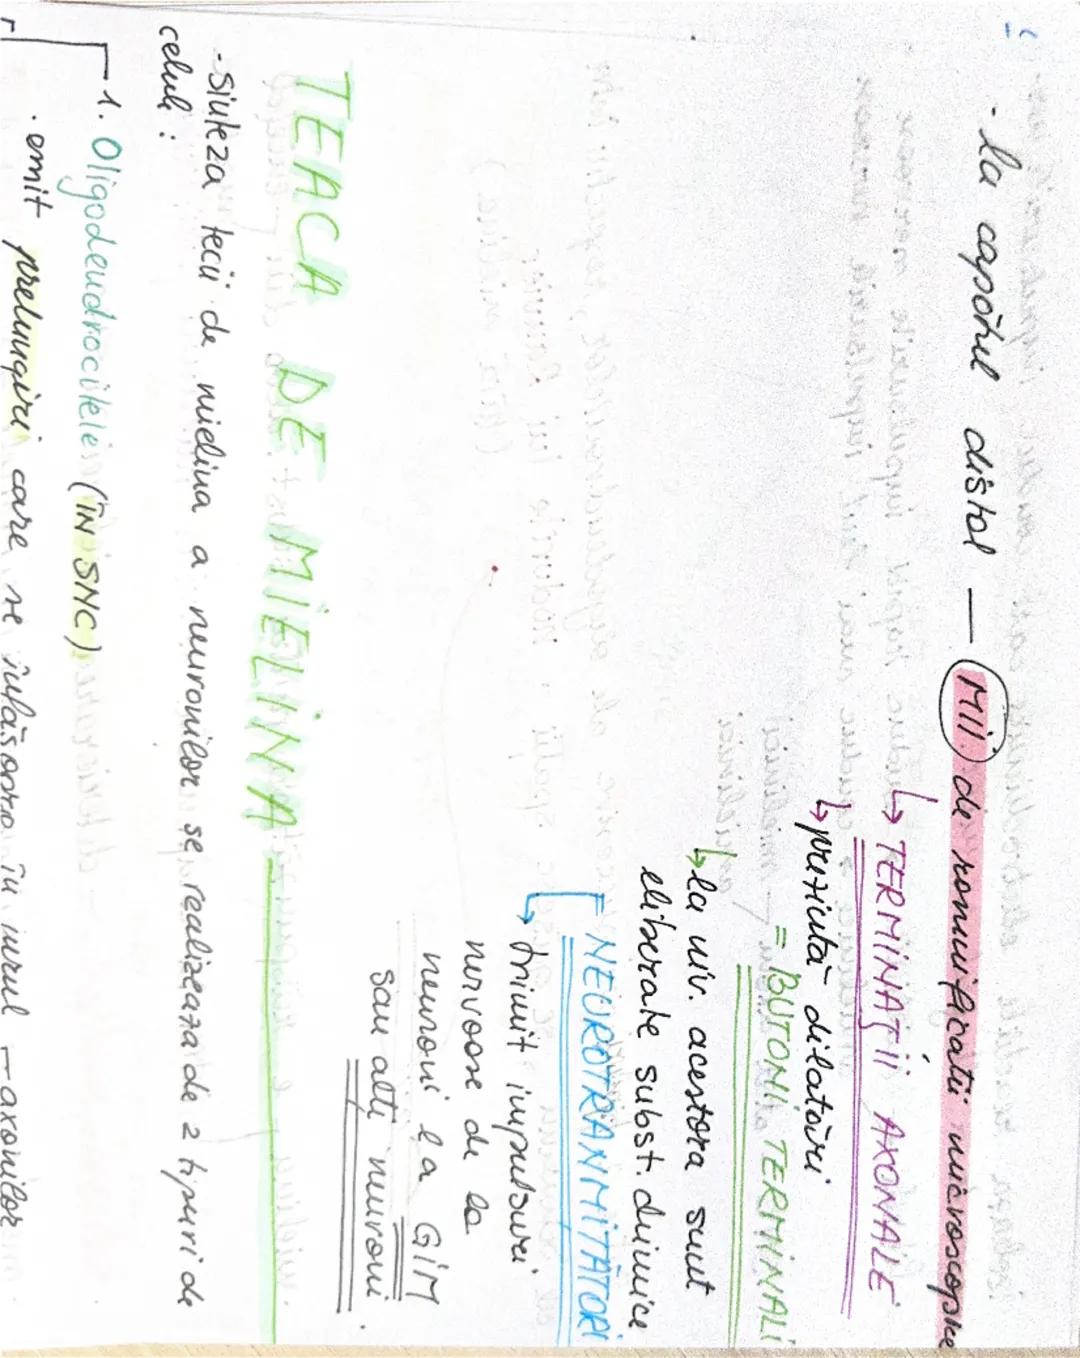 - la capătul distal — MII de ramificații microscopice
↳ TERMINAȚII AXONALE
↳ prezintă dilatări
= BUTONI TERMINALI
↳ la niv. acestora sunt
eliberate subst. chimice
NEUROTRANMIȚĂTORI
↳ trimit impulsuri
nervoase de la
neuroni la GIM
sau alți neuroni.
TEACA DE MIELINA
- Sinteza tecii de mielina a neuronilor se realizeaza de 2 tipuri de
celule :
1. Oligodendrocitele (ÎN SNC)
. emit prelungiri care se înfășoara în jurul axonilor